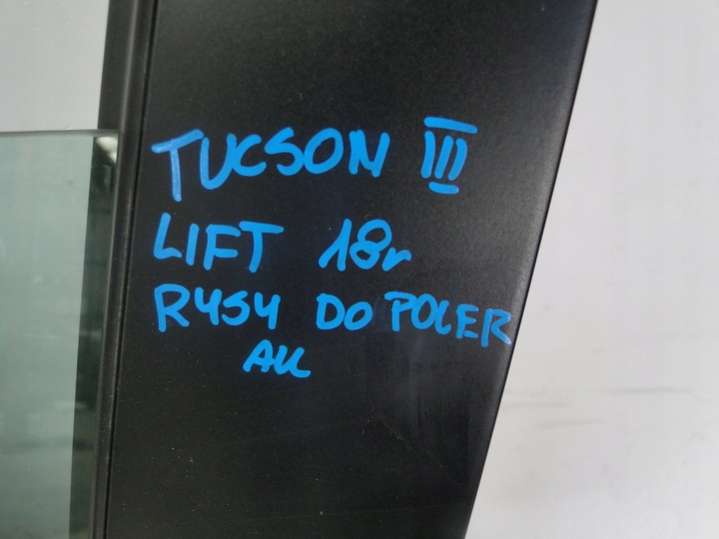 TUCSON III
LIFT 18r
RYSY DO POLER